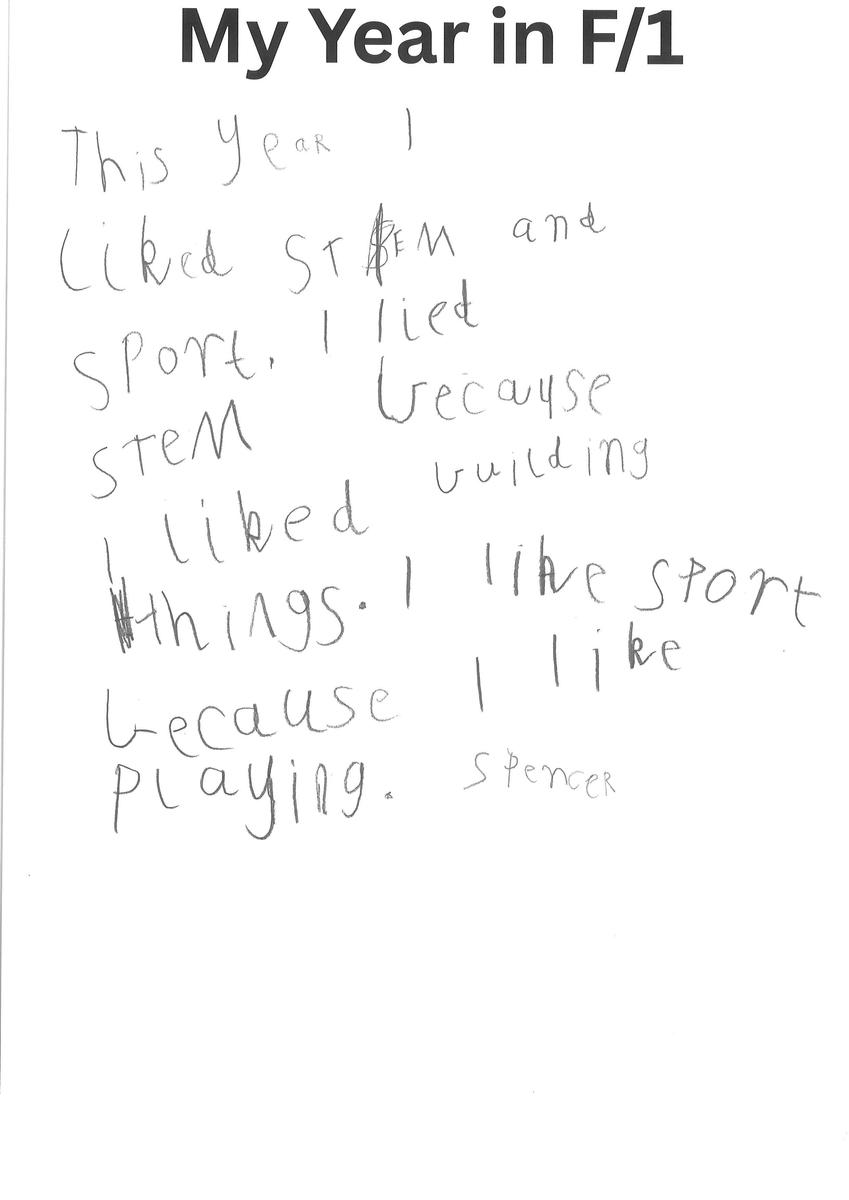 My Year in F/1
This Year I
liked STEM and
sport. I lied
STEM because
I liked building
things. I like sport
because I like
playing. Spencer